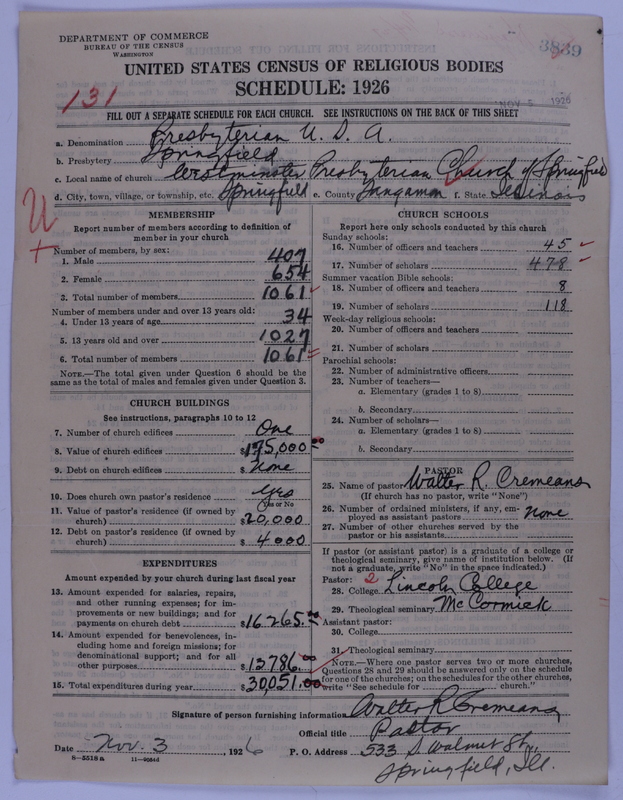 DEPARTMENT OF COMMERCE
BUREAU OF THE CENSUS
WASHINGTON
3839
UNITED STATES CENSUS OF RELIGIOUS BODIES
SCHEDULE: 1926
131
NOV 5 1926
FILL OUT A SEPARATE SCHEDULE FOR EACH CHURCH. SEE INSTRUCTIONS ON THE BACK OF THIS SHEET
a. Denomination Presbyterian U. S. A.
b. Presbytery Springfield
c. Local name of church Westminster Presbyterian Church of Springfield
d. City, town, village, or township, etc. Springfield e. County Sangamon f. State Illinois
MEMBERSHIP
Report number of members according to definition of
member in your church
Number of members, by sex:
1. Male 407
2. Female 654
3. Total number of members 1061
Number of members under and over 13 years old:
4. Under 13 years of age 34
5. 13 years old and over 1027
6. Total number of members 1061
NOTE.—The total given under Question 6 should be
the same as the total of males and females given under Question 3.
CHURCH BUILDINGS
See instructions, paragraphs 10 to 12
7. Number of church edifices One
8. Value of church edifices $175,000.00
9. Debt on church edifices $None
10. Does church own pastor's residence Yes
Yes or No
11. Value of pastor's residence (if owned by
church) $20,000
12. Debt on pastor's residence (if owned by
church) $4000
EXPENDITURES
Amount expended by your church during last fiscal year
13. Amount expended for salaries, repairs,
and other running expenses; for im-
provements or new buildings; and for
payments on church debt $16.265.
14. Amount expended for benevolences, in-
cluding home and foreign missions; for
denominational support; and for all
other purposes $13786.00
15. Total expenditures during year $30,051.00
CHURCH SCHOOLS
Report here only schools conducted by this church
Sunday schools:
16. Number of officers and teachers 45
17. Number of scholars 478
Summer vacation Bible schools:
18. Number of officers and teachers 8
19. Number of scholars 118
Week-day religious schools:
20. Number of officers and teachers
21. Number of scholars
Parochial schools:
22. Number of administrative officers
23. Number of teachers—
a. Elementary (grades 1 to 8)
b. Secondary
24. Number of scholars—
a. Elementary (grades 1 to 8)
b. Secondary
PASTOR
25. Name of pastor Walter R. Cremeans
(If church has no pastor, write "None")
26. Number of ordained ministers, if any, em-
ployed as assistant pastors None
27. Number of other churches served by the
pastor or his assistants
If pastor (or assistant pastor) is a graduate of a college or
theological seminary, give name of institution below. (If
not a graduate, write "No" in the space indicated.)
Pastor: 2
28. College Lincoln College
29. Theological seminary McCormick
Assistant pastor:
30. College
31. Theological seminary
NOTE.—Where one pastor serves two or more churches,
Questions 28 and 29 should be answered only on the schedule
for one of the churches; on the schedules for the other churches,
write "See schedule for church."
Signature of person furnishing information Walter R Cremeans
Official title Pastor
Date Nov. 3 1926 P. O. Address 533 S Walnut St.,
8—5518a 11—9034d
Springfield, Ill.